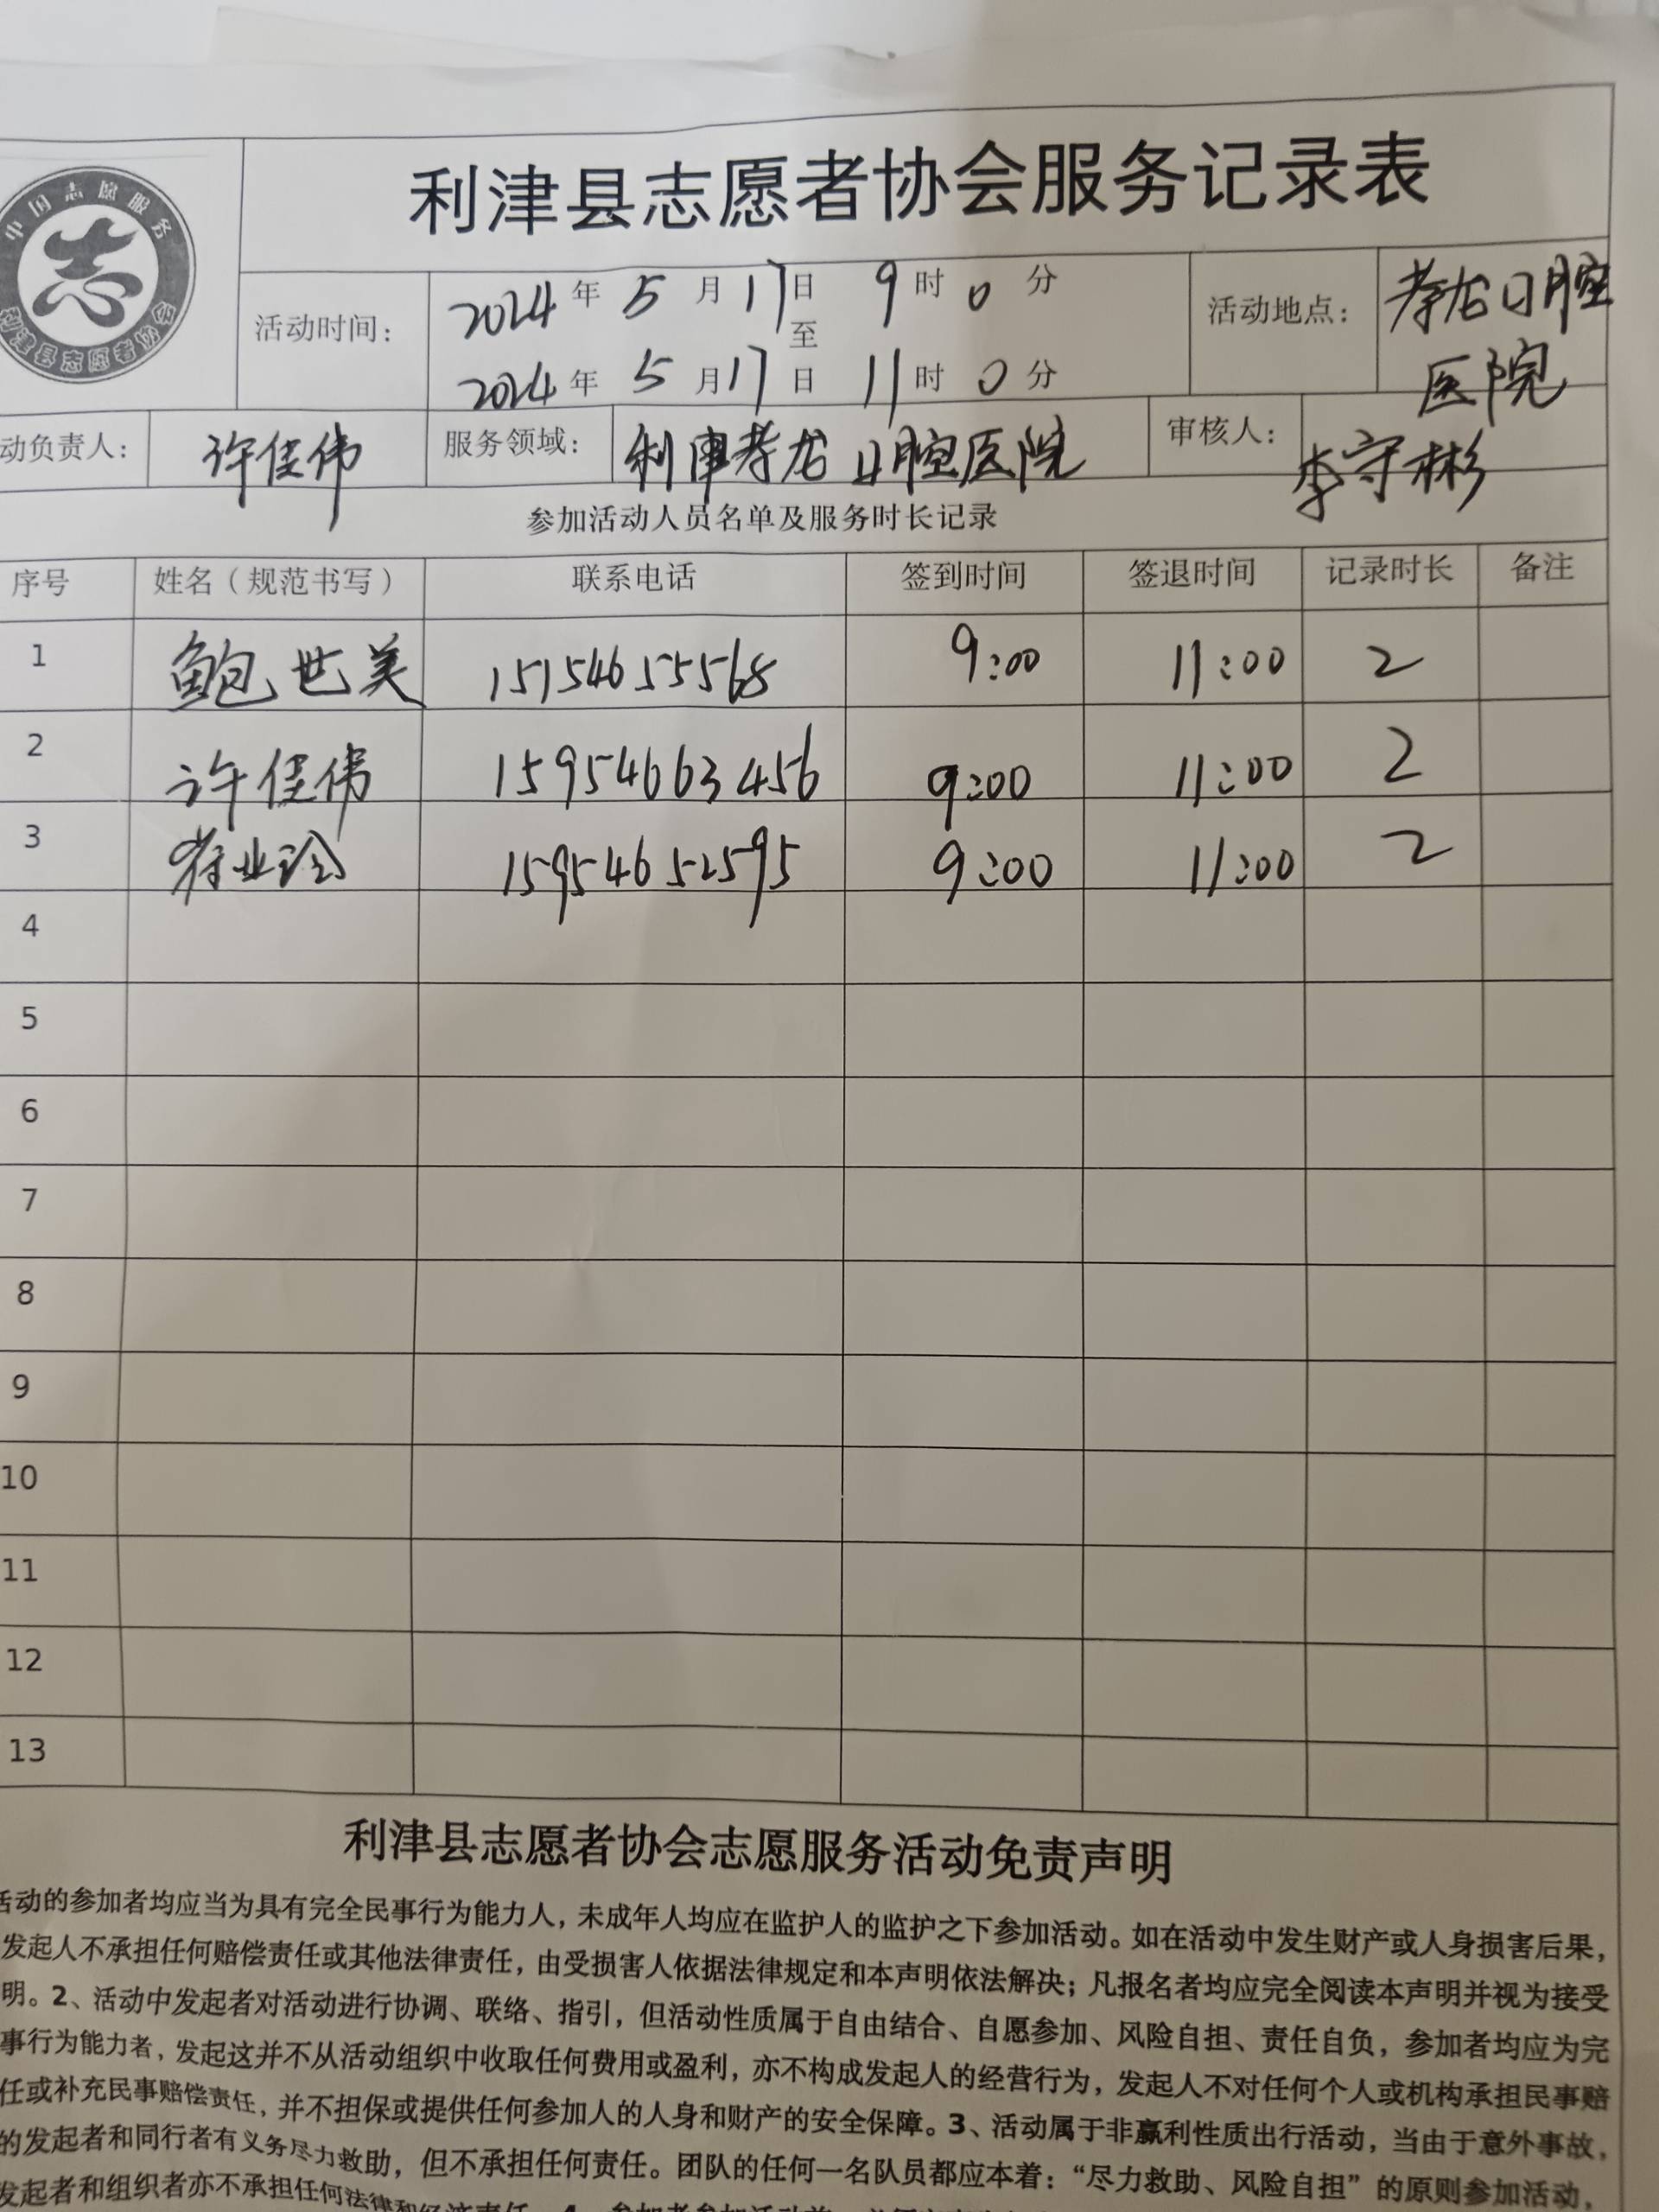 中国志愿服务
志
利津县志愿者协会
利津县志愿者协会服务记录表
活动时间：
2024年5月17日9时0分
至
2024年5月17日11时0分
活动地点：
孝龙口腔
医院
动负责人：
许佳伟
服务领域：
利津孝龙口腔医院
审核人：
李守彬
参加活动人员名单及服务时长记录
序号 姓名（规范书写） 联系电话 签到时间 签退时间 记录时长 备注
1 鲍世美 15154655568 9:00 11:00 2
2 许佳伟 15954663456 9:00 11:00 2
3 15954652595 9:00 11:00 2
4
5
6
7
8
9
10
11
12
13
利津县志愿者协会志愿服务活动免责声明
活动的参加者均应当为具有完全民事行为能力人，未成年人均应在监护人的监护之下参加活动。如在活动中发生财产或人身损害后果，
发起人不承担任何赔偿责任或其他法律责任，由受损害人依据法律规定和本声明依法解决；凡报名者均应完全阅读本声明并视为接受
明。2、活动中发起者对活动进行协调、联络、指引，但活动性质属于自由结合、自愿参加、风险自担、责任自负，参加者均应为完
事行为能力者，发起这并不从活动组织中收取任何费用或盈利，亦不构成发起人的经营行为，发起人不对任何个人或机构承担民事赔
任或补充民事赔偿责任，并不担保或提供任何参加人的人身和财产的安全保障。3、活动属于非赢利性质出行活动，当由于意外事故，
的发起者和同行者有义务尽力救助，但不承担任何责任。团队的任何一名队员都应本着：“尽力救助、风险自担”的原则参加活动，
发起者和组织者亦不承担任何法律和经济责任。4、参加者参加活动前，